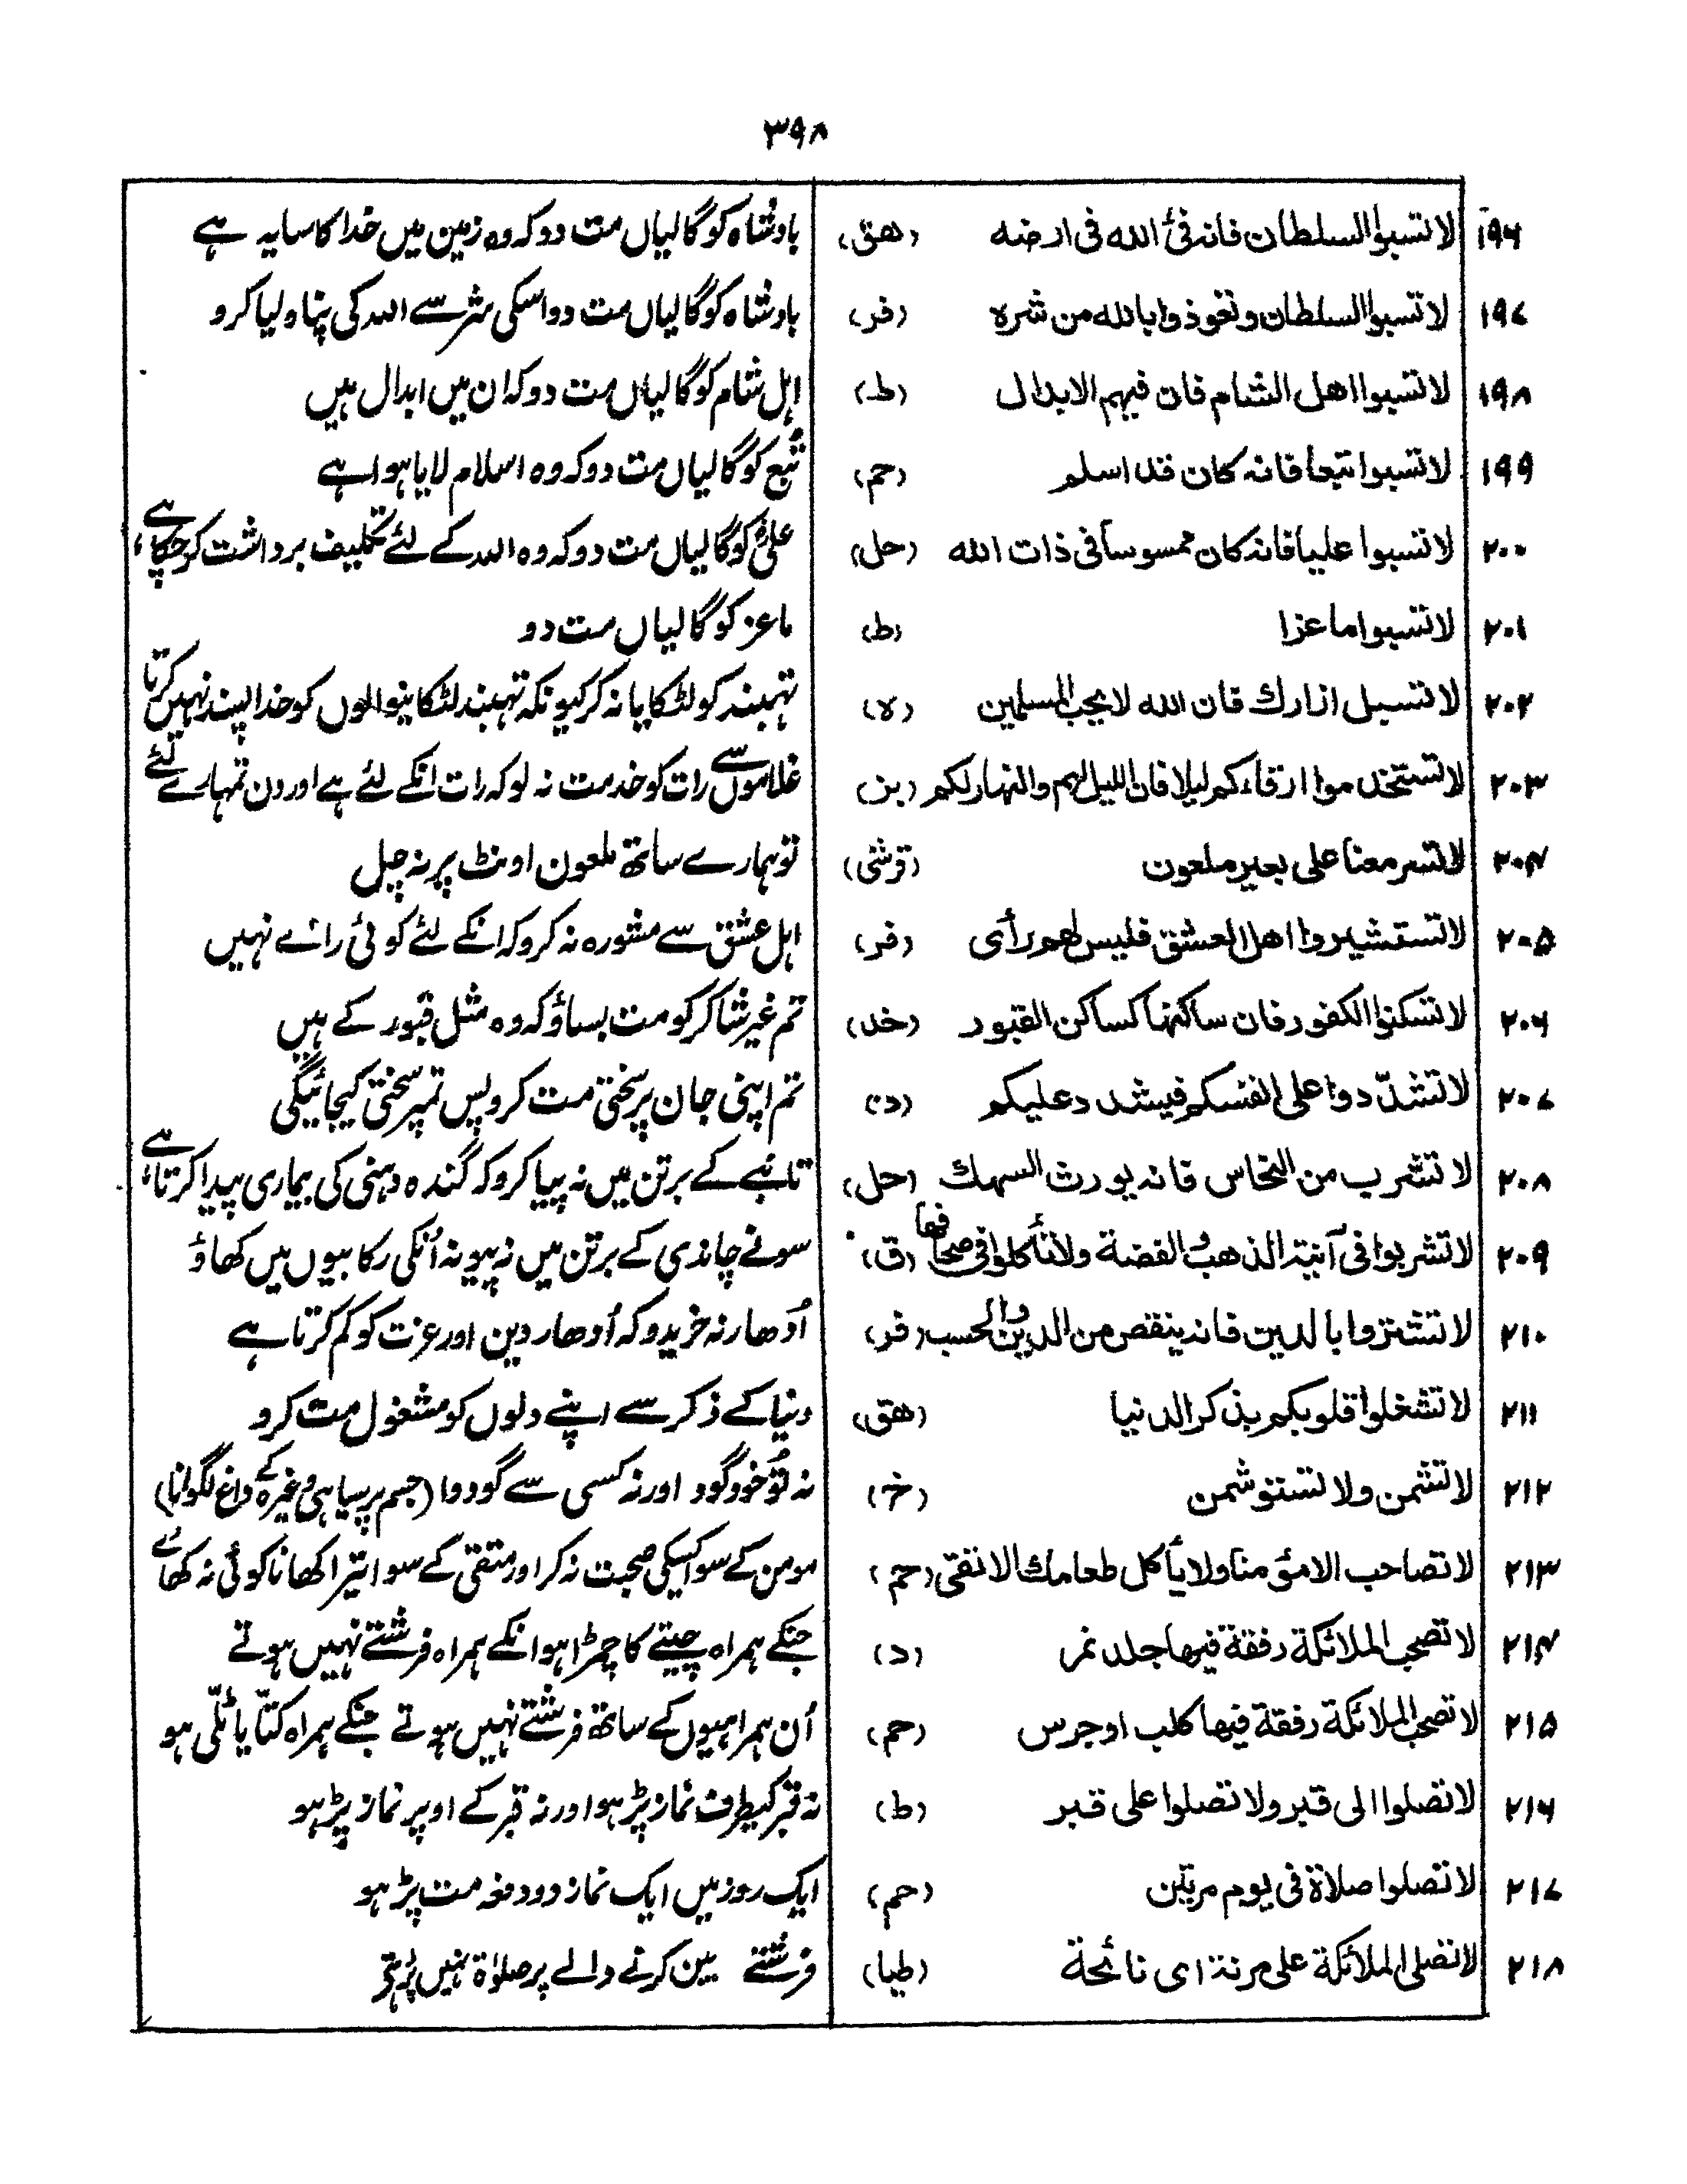 ۳۹۸
۱۹۶ لا تسبوا السلطان فانه فئ الله فى ارضه (هق) بادشاہ کو گالیاں مت دو کہ وہ زمین میں خدا کا سایہ ہے
۱۹۷ لا تسبوا السلطان وتعوذوا بالله من شره (فر) بادشاہ کو گالیاں مت دو اسکی شر سے اللہ کی پناہ لیا کرو
۱۹۸ لا تسبوا اهل الشام فان فيهم الابدال (طـ) اہل شام کو گالیاں مت دو کہ ان میں ابدال ہیں
۱۹۹ لا تسبوا تبعا فانه كان قد اسلم (حم) تُبع کو گالیاں مت دو کہ وہ اسلام لایا ہوا ہے
۲۰۰ لا تسبوا عليا فانه كان ممسوسا فى ذات الله (حل) علیؓ کو گالیاں مت دو کہ وہ اللہ کے لئے تکلیف برداشت کرچکا ہے،
۲۰۱ لا تسبوا ماعزا (ط) ماعز کو گالیاں مت دو
۲۰۲ لا تسبل ازارك فان الله لا يحب المسلمين (لا) تہبند کو لٹکایا نہ کر کیونکہ تہبند لٹکانیوالوں کو خدا پسند نہیں کرتا
۲۰۳ لا تستخدموا ارقاءكم ليلا فان الليل لهم والنهار لكم (بز) غلاموں سے رات کو خدمت نہ لو کہ رات انکے لئے ہے اور دن تمہارے لئے
۲۰۴ لا تسر معنا على بعير ملعون (قرشى) تو ہمارے ساتھ ملعون اونٹ پر نہ چل
۲۰۵ لا تستشيروا اهل العشق فليس لهم رأى (فر) اہل عشق سے مشورہ نہ کرو کہ انکے لئے کوئی رائے نہیں
۲۰۶ لا تسكنوا الكفور فان ساكنها كساكن القبور (خد) تم غیر شاکر کو مت بساؤ کہ وہ مثل قبور کے ہیں
۲۰۷ لا تشدّدوا على انفسكم فيشدد عليكم (د) تم اپنی جان پر سختی مت کرو پس تمپر سختی کیجائیگی
۲۰۸ لا تشرب من النحاس فانه يورث السهك (حل) تانبے کے برتن میں نہ پیا کرو کہ گندہ دہنی کی بیماری پیدا کرتا ہے،
۲۰۹ لا تشربوا فى آنية الذهب والفضة ولا تأكلوا فى صحافها (ق) سونے چاندی کے برتن میں نہ پیو نہ اُنکی رکابیوں میں کھاؤ
۲۱۰ لا تشتروا بالدين فانه ينقص من الدين والحسب (فر) اُدھار نہ خریدو کہ اُدھار دین اور عزت کو کم کرتا ہے
۲۱۱ لا تشغلوا قلوبكم بذكر الدنيا (هق) دنیا کے ذکر سے اپنے دلوں کو مشغول مت کرو
۲۱۲ لا تشمن ولا تستوشمن (خ) نہ تُو خود گود اور نہ کسی سے گودوا (جسم پر سیاہی وغیرہ کے داغ لگوانا)
۲۱۳ لا تصاحب الا مؤمنا ولا يأكل طعامك الا تقى (حم) مومن کے سوا کسیکی صحبت نہ کر اور متقی کے سوا تیرا کھانا کوئی نہ کھائے
۲۱۴ لا تصحب الملائكة رفقة فيها جلد نمر (د) جنکے ہمراہ چیتے کا چمڑا ہو انکے ہمراہ فرشتے نہیں ہوتے
۲۱۵ لا تصحب الملائكة رفقة فيها كلب او جرس (حم) اُن ہمراہیوں کے ساتھ فرشتے نہیں ہوتے جنکے ہمراہ کتّا یا ٹلّی ہو
۲۱۶ لا تصلوا الى قبر ولا تصلوا على قبر (ط) نہ قبر کیطرف نماز پڑہو اور نہ قبر کے اوپر نماز پڑہو
۲۱۷ لا تصلوا صلاة فى يوم مرتين (حم) ایک روز میں ایک نماز دو دفعہ مت پڑہو
۲۱۸ لا تصلى الملائكة على مرنة اى نائحة (طيا) فرشتے بین کرنے والے پر صلوٰۃ نہیں پڑہتے